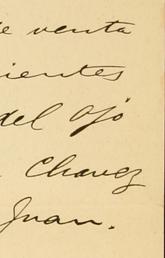 de venta
ientes
del Ojo
Chavez
Juan.